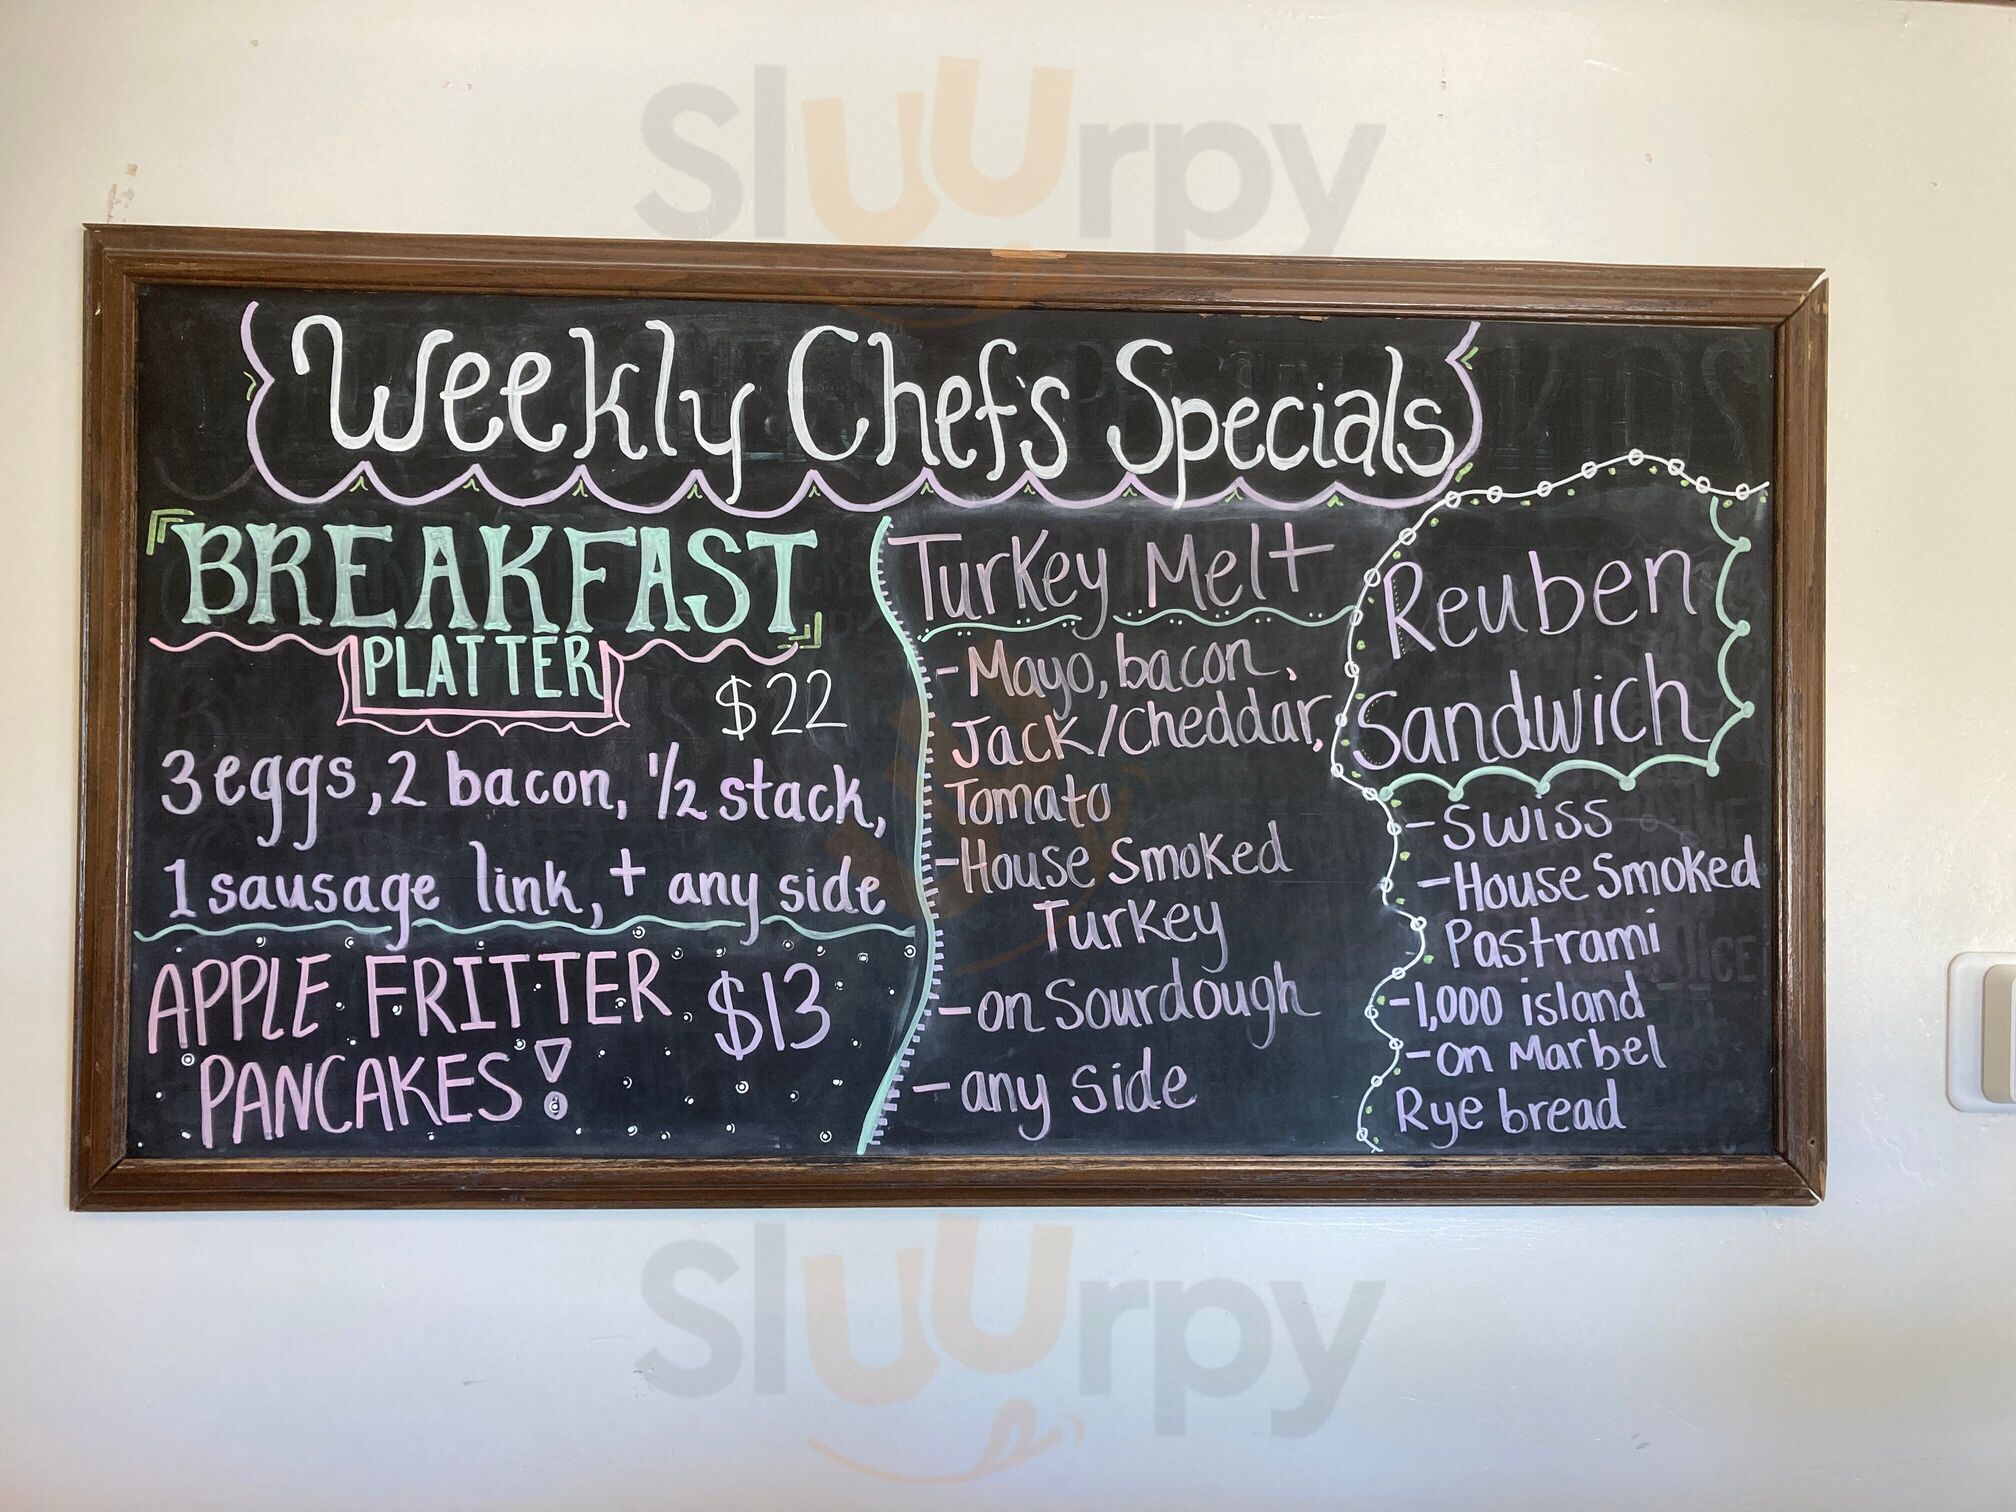 Sluurpy
Weekly Chef's Specials
BREAKFAST
PLATTER
$22
3 eggs, 2 bacon, 1/2 stack,
1 sausage link, + any side
APPLE FRITTER $13
PANCAKES!
Turkey Melt
-Mayo, bacon,
Jack/Cheddar,
Tomato
-House Smoked
Turkey
-on Sourdough
-any side
Reuben
Sandwich
-Swiss
-House Smoked
Pastrami
-1,000 island
-on Marbel
Rye bread
Sluurpy